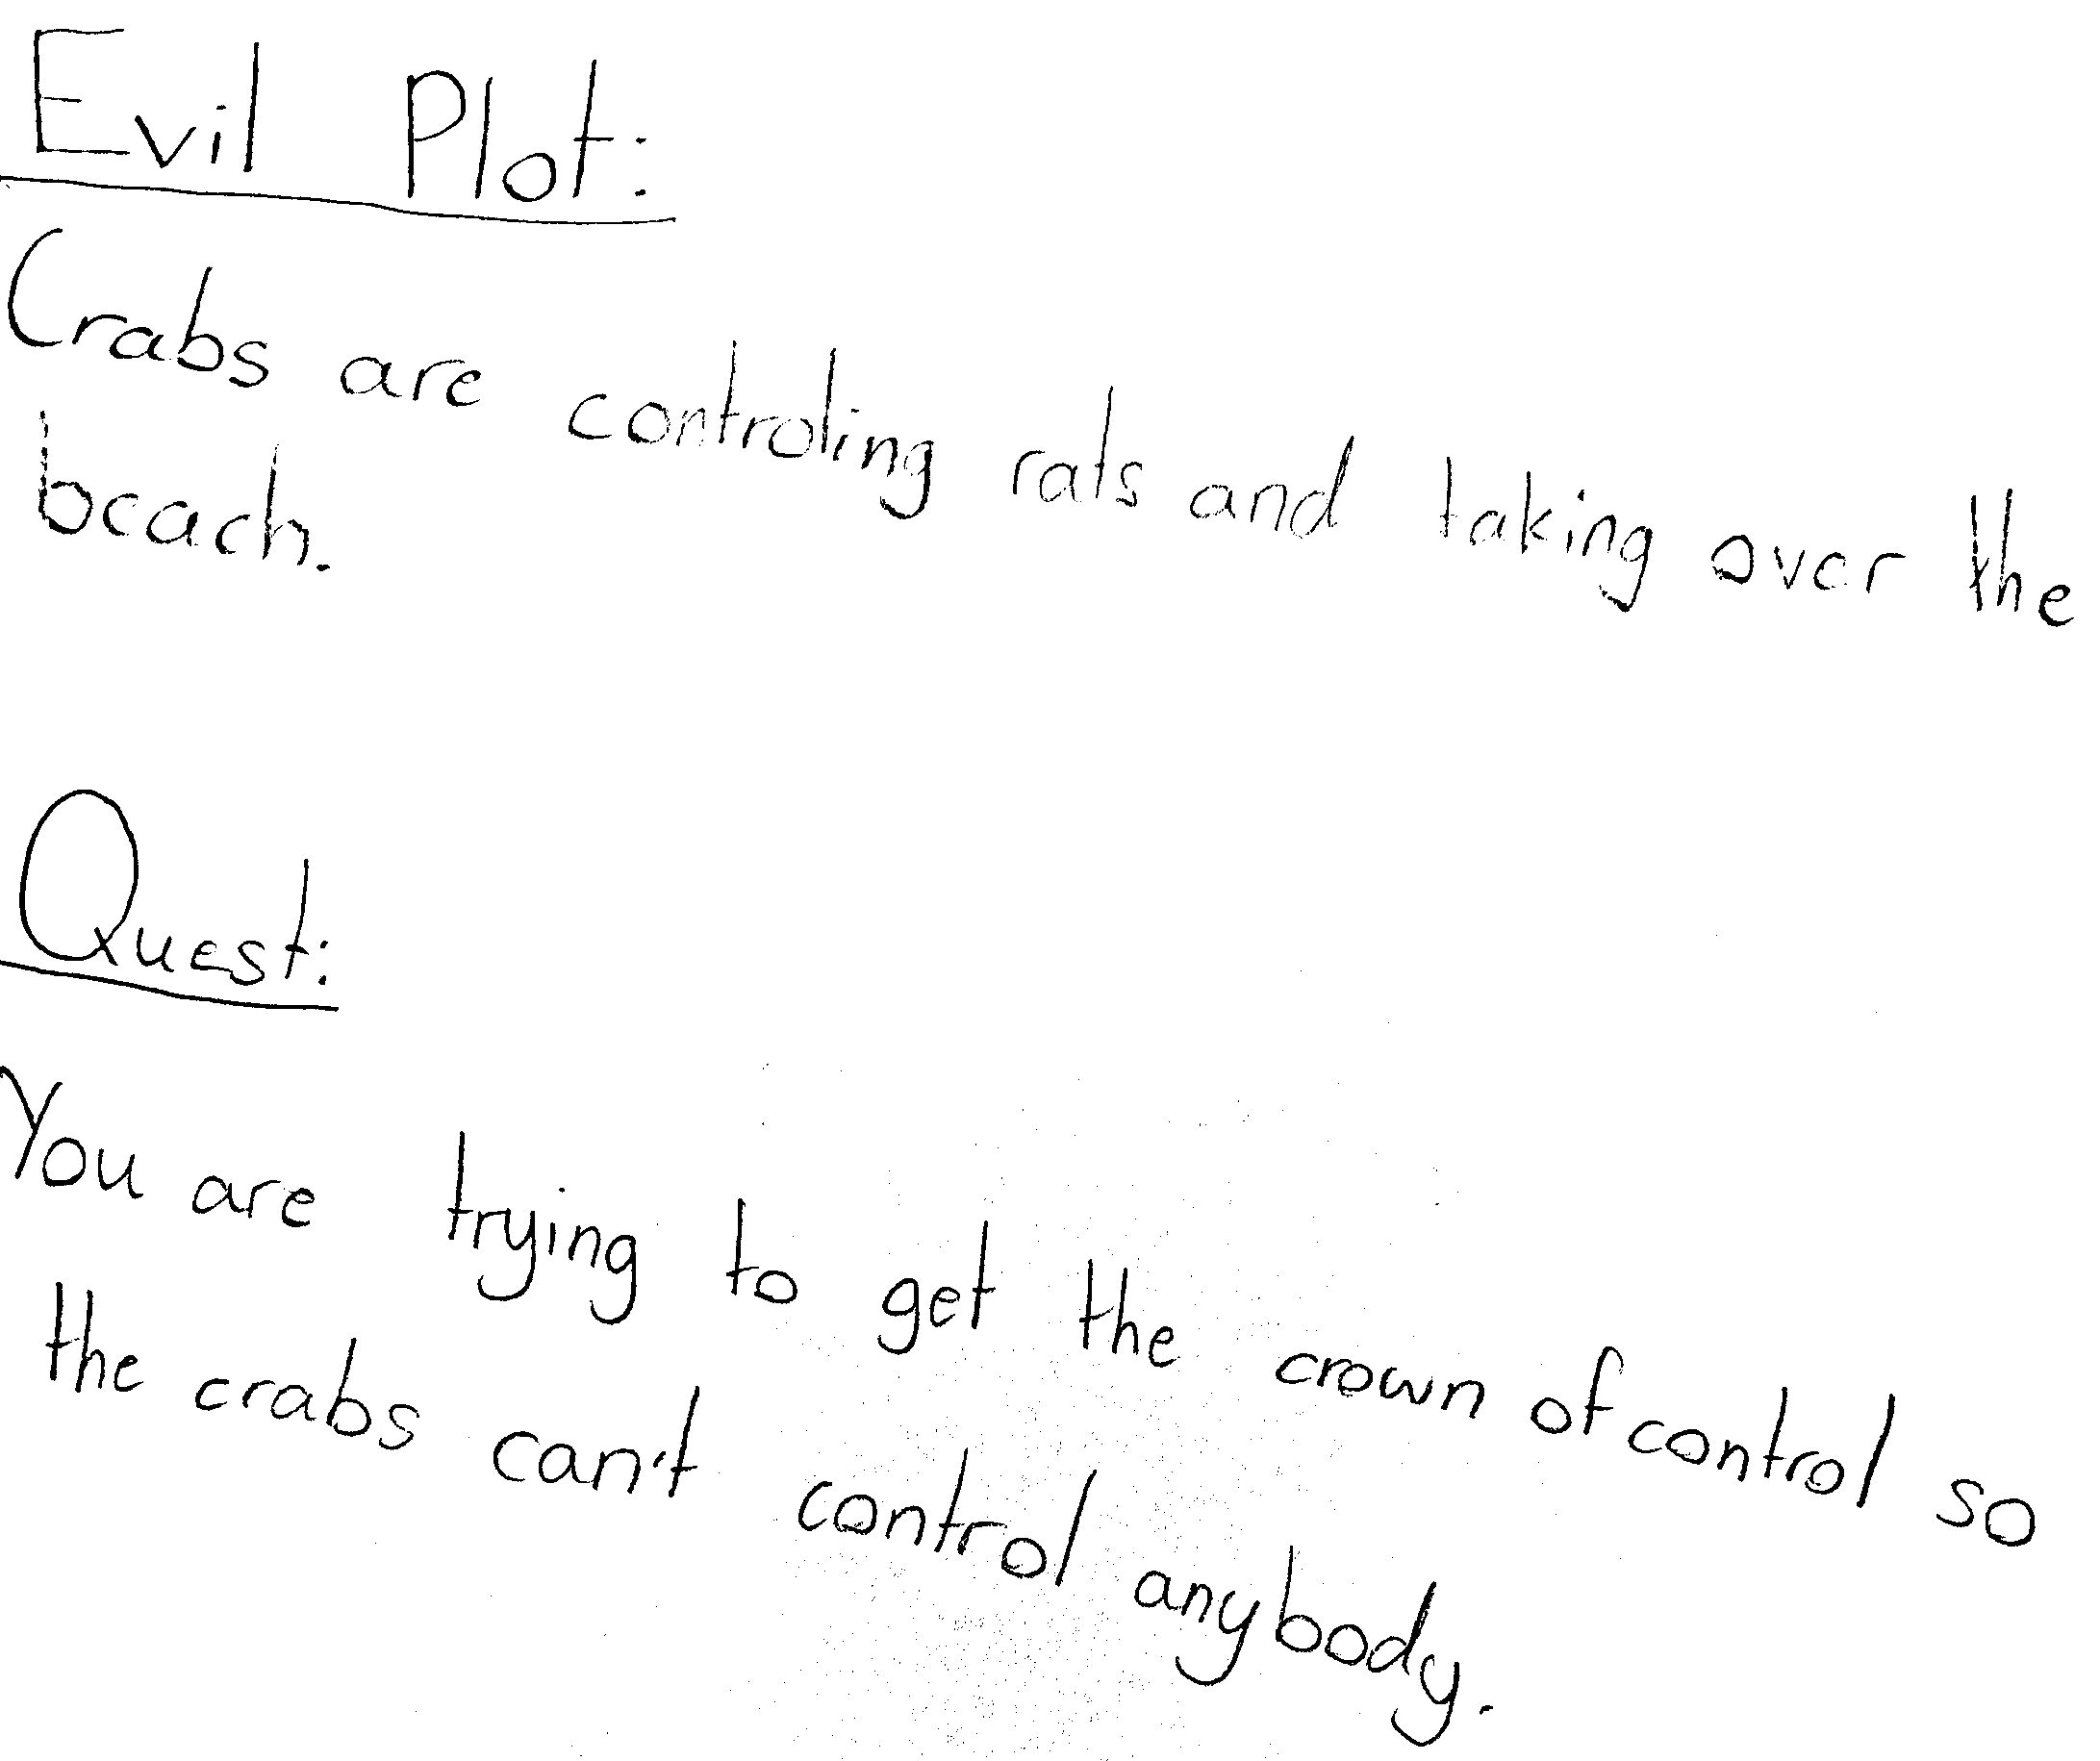 Evil Plot:
Crabs are controling rats and taking over the
beach.
Quest:
You are trying to get the crown of control so
the crabs can't control anybody.